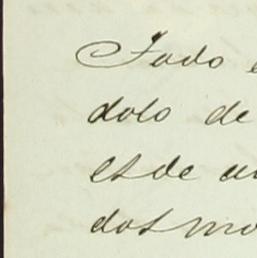 Todo e
dolo de
esde au
dos mo